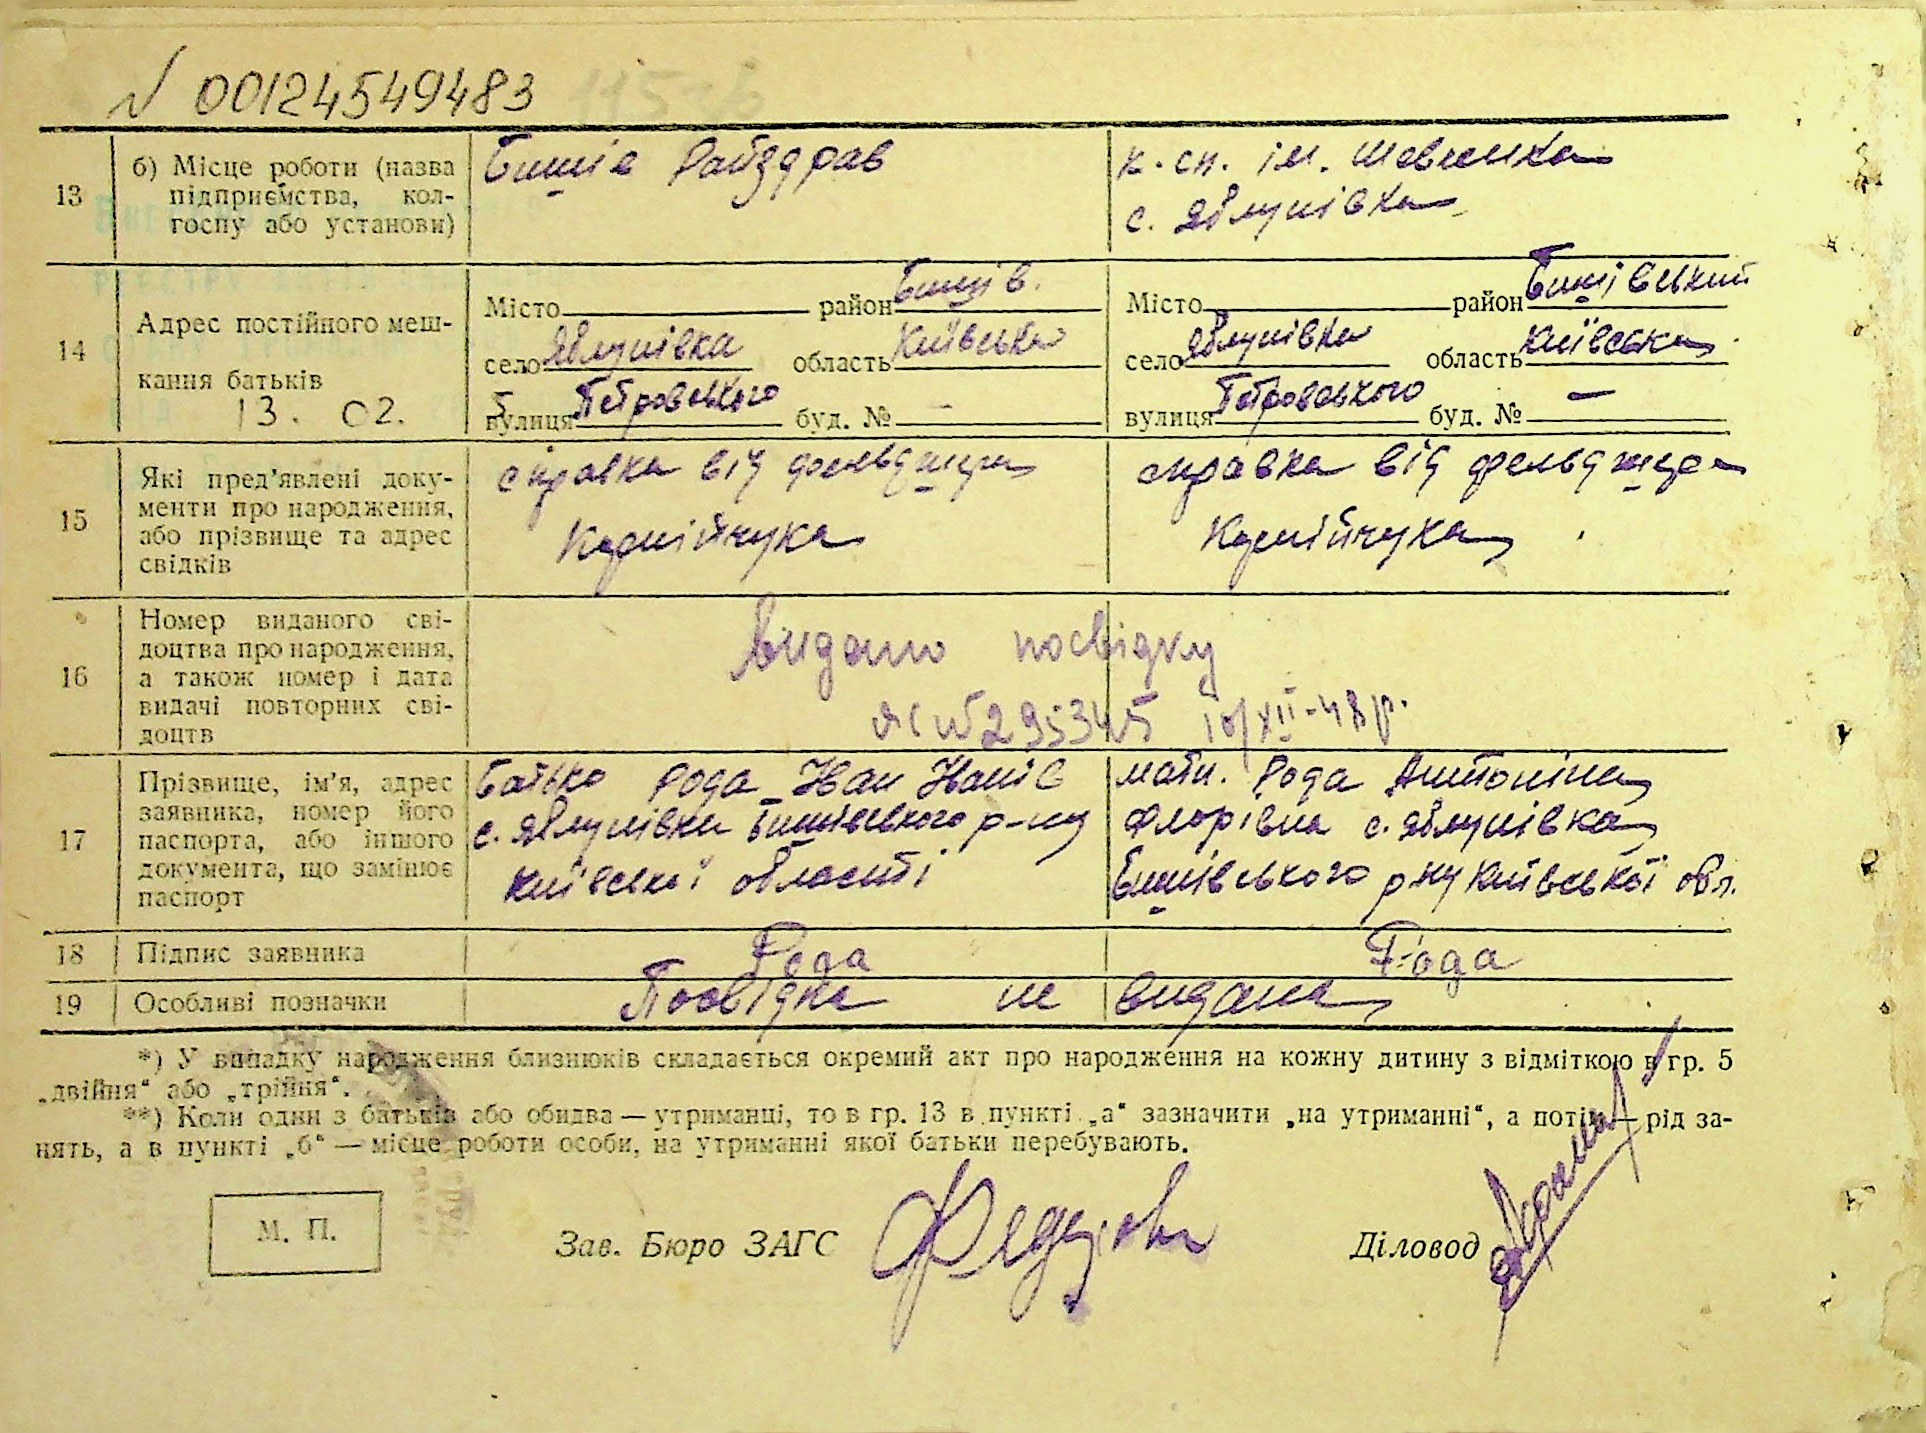 № 00124549483
13 б) Місце роботи (назва підприємства, колгоспу або установи)
Бишів Райздрав
к-сп. ім. Шевченка
с. Яблунівка
14 Адрес постійного мешкання батьків
13. 02.
Місто район Бишів.
село Яблунівка область Київська
вулиця Петровського буд. № —
Місто район Бишівський
село Яблунівка область Київська
вулиця Петровського буд. № —
15 Які пред’явлені документи про народження, або прізвище та адрес свідків
справка від фельдшера
справка від фельдшера
16 Номер виданого свідоцтва про народження, а також номер і дата видачі повторних свідоцтв
Видано посвідку
№ 295345 10/XII-48р.
17 Прізвище, ім’я, адрес заявника, номер його паспорта, або іншого документа, що замінює паспорт
Батько Рода Іван
с. Яблунівки Бишівського р-ну
Київської області
мати. Рода Антоніна
Флорівна с. Яблунівка
Бишівського р-ну Київської обл.
18 Підпис заявника Рода Рода
19 Особливі позначки Посвідка не видана
*) У випадку народження близнюків складається окремий акт про народження на кожну дитину з відміткою в гр. 5
„двійня“ або „трійня“.
**) Коли один з батьків або обидва — утриманці, то в гр. 13 в пункті „а“ зазначити „на утриманні“, а потім — рід за-
нять, а в пункті „б“ — місце роботи особи, на утриманні якої батьки перебувають.
М. П.
Зав. Бюро ЗАГС
Діловод